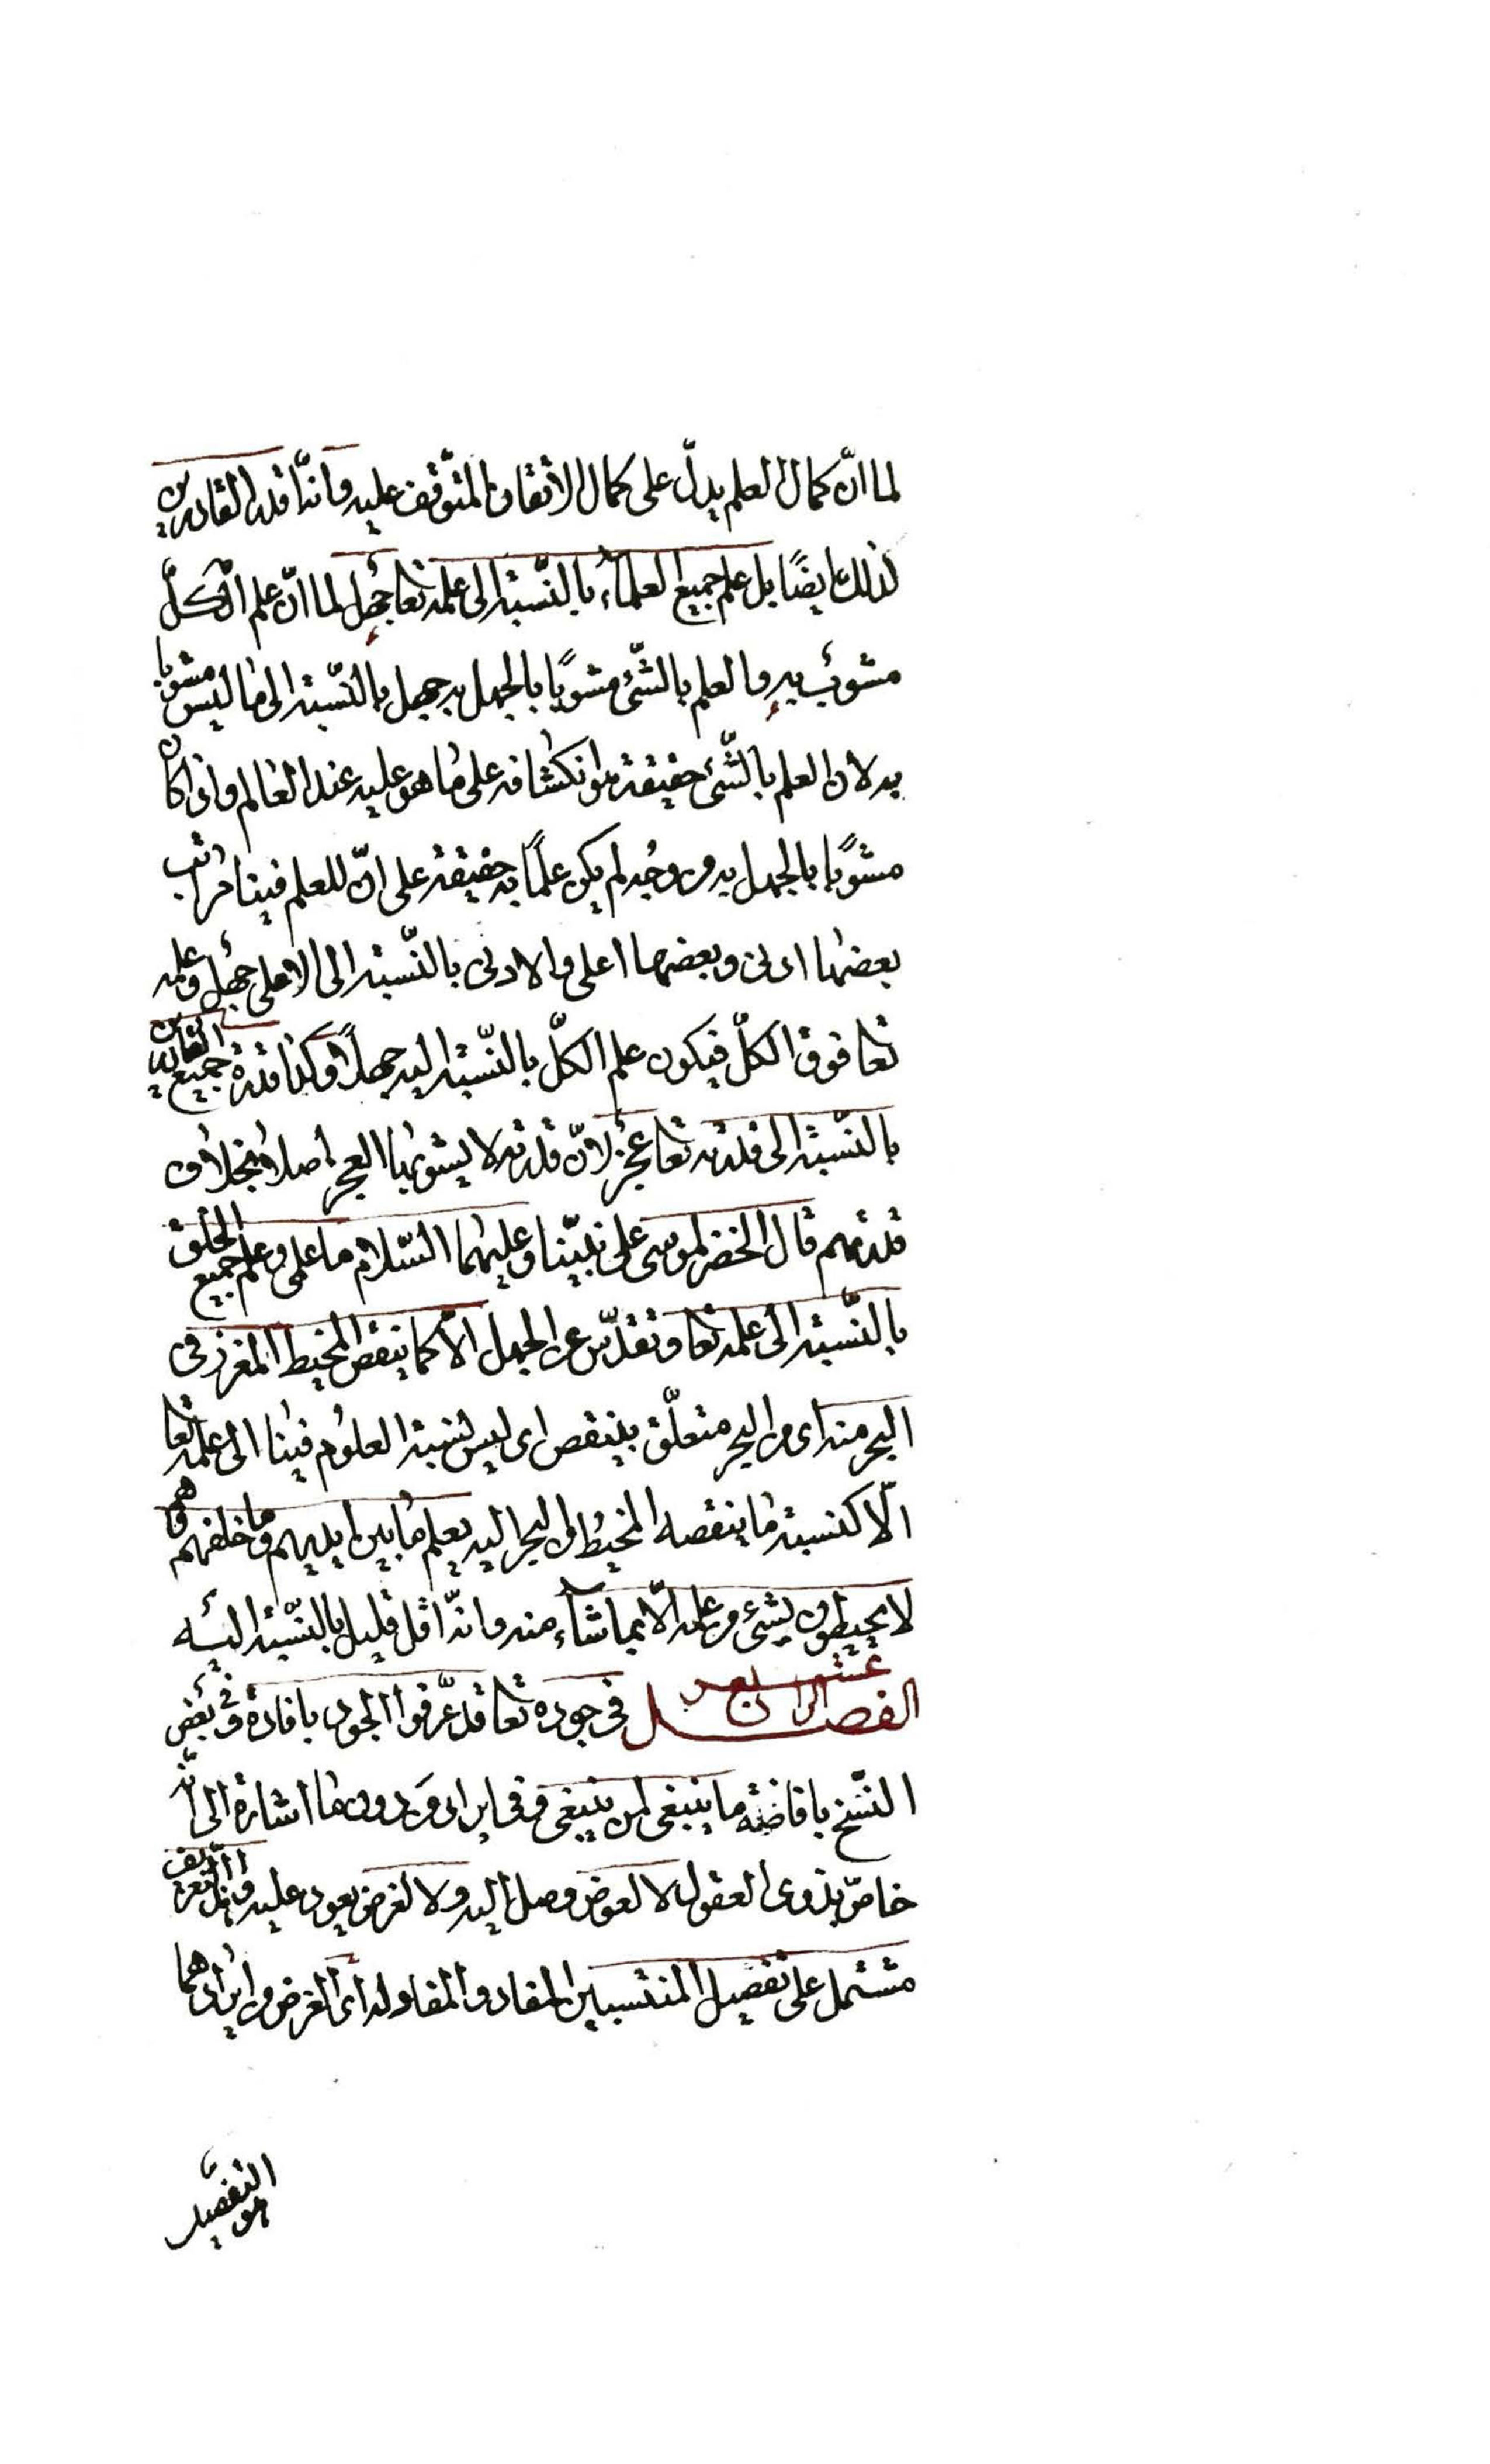 لما انّ كمال العلم يدلّ على كمال الاتقان المتوقف عليه وانّه اقدر القادرين
لذلك ايضًا بل علم جميع العلماء بالنّسبة الى علمه تعا جهل لما انّ علم الكلّ
مشوب به والعلم بالشّئ مشوبًا بالجهل به جهل بالنّسبة الى ما ليس مشوبا
به لان العلم بالشّئ حقيقة هو انكشافه على ما هو عليه عند العالم واذا كان
مشوبًا بالجهل به من وجه لم يكن علمًا به حقيقة على انّ للعلم فينا مراتب
بعضها ادنى وبعضها اعلى والادنى بالنّسبة الى الاعلى جهل وعلمه
تعا فوق الكلّ فيكون علم الكلّ بالنّسبة اليه جهلًا وكذا قدرة جميع القادرين
بالنّسبة الى قدرته تعا عجز لانّ قدرته لا يشوبها العجز اصلا بخلاف
قدرتهم قال الخضر لموسى على نبيّنا وعليهما السّلام ما علمى وعلم جميع الخلق
بالنّسبة الى علمه تعا وتقدّس عن الجهل الّا كما ينقص المخيط المغرز فى
البحر منه اى من البحر متعلّق بينقص اى ليس نسبة العلوم فينا الى علمه تعا
الّا كنسبة ما ينقصه المخيط من البحر اليه يعلم ما بين ايديهم وما خلفهم وهم
لا يحيطون بشئ من علمه الّا بما شاء منه وانّه اقل قليل بالنّسبة اليه
الفصل الرابع عشر فى جوده تعا قد عّرفوا الجود بافادة وفى بعض
النّسخ بافاضة ما ينبغى لمن ينبغى وفى ايراد من دون ما اشارة الى انّه
خاصّ بذوى العقول لا لعوض وصل اليه ولا لغرض يعود عليه وهذا التعريف
مشتمل على تفصيل المنتسبين المفاد والمفاد له اى الغرض من ايرادهما
هو التفصيل